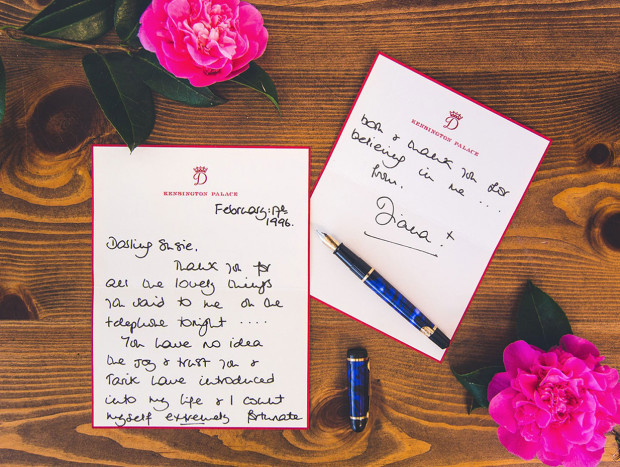 D
KENSINGTON PALACE
February: 17th
1996.
Darling Susie,
Thank you for
all the lovely things
you said to me on the
telephone tonight ....
You have no idea
the joy & trust you &
Tarik have introduced
into my life & I count
myself extremely fortunate
D
KENSINGTON PALACE
both & thank you for
believing in me ...
from,
Diana. x